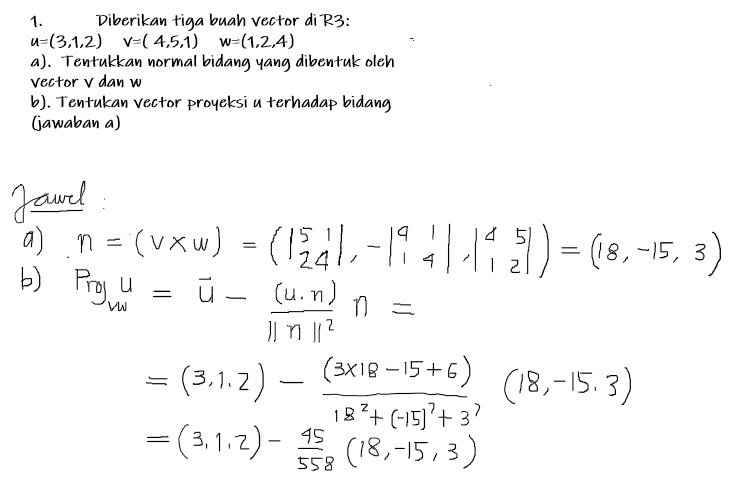 1. Diberikan tiga buah vector di R3:
u=(3,1,2) v=( 4,5,1) w=(1,2,4)
a). Tentukkan normal bidang yang dibentuk oleh
vector v dan w
b). Tentukan vector proyeksi u terhadap bidang
(jawaban a)
Jawab :
a) n = (v×w) = (|5 1; 2 4|, -|4 1; 1 4|, |4 5; 1 2|) = (18, -15, 3)
b) Proj_vw u = u⃗ - (u.n)/||n||² n =
= (3,1.2) - (3×18 -15+6)/(18²+(-15)²+3²) (18,-15.3)
= (3.1.2) - 45/558 (18,-15,3)